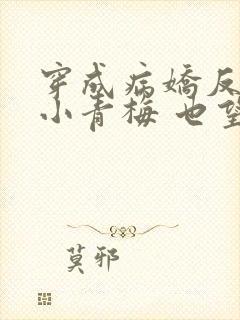 穿成病嬌反
小青梅 也望
莫邪